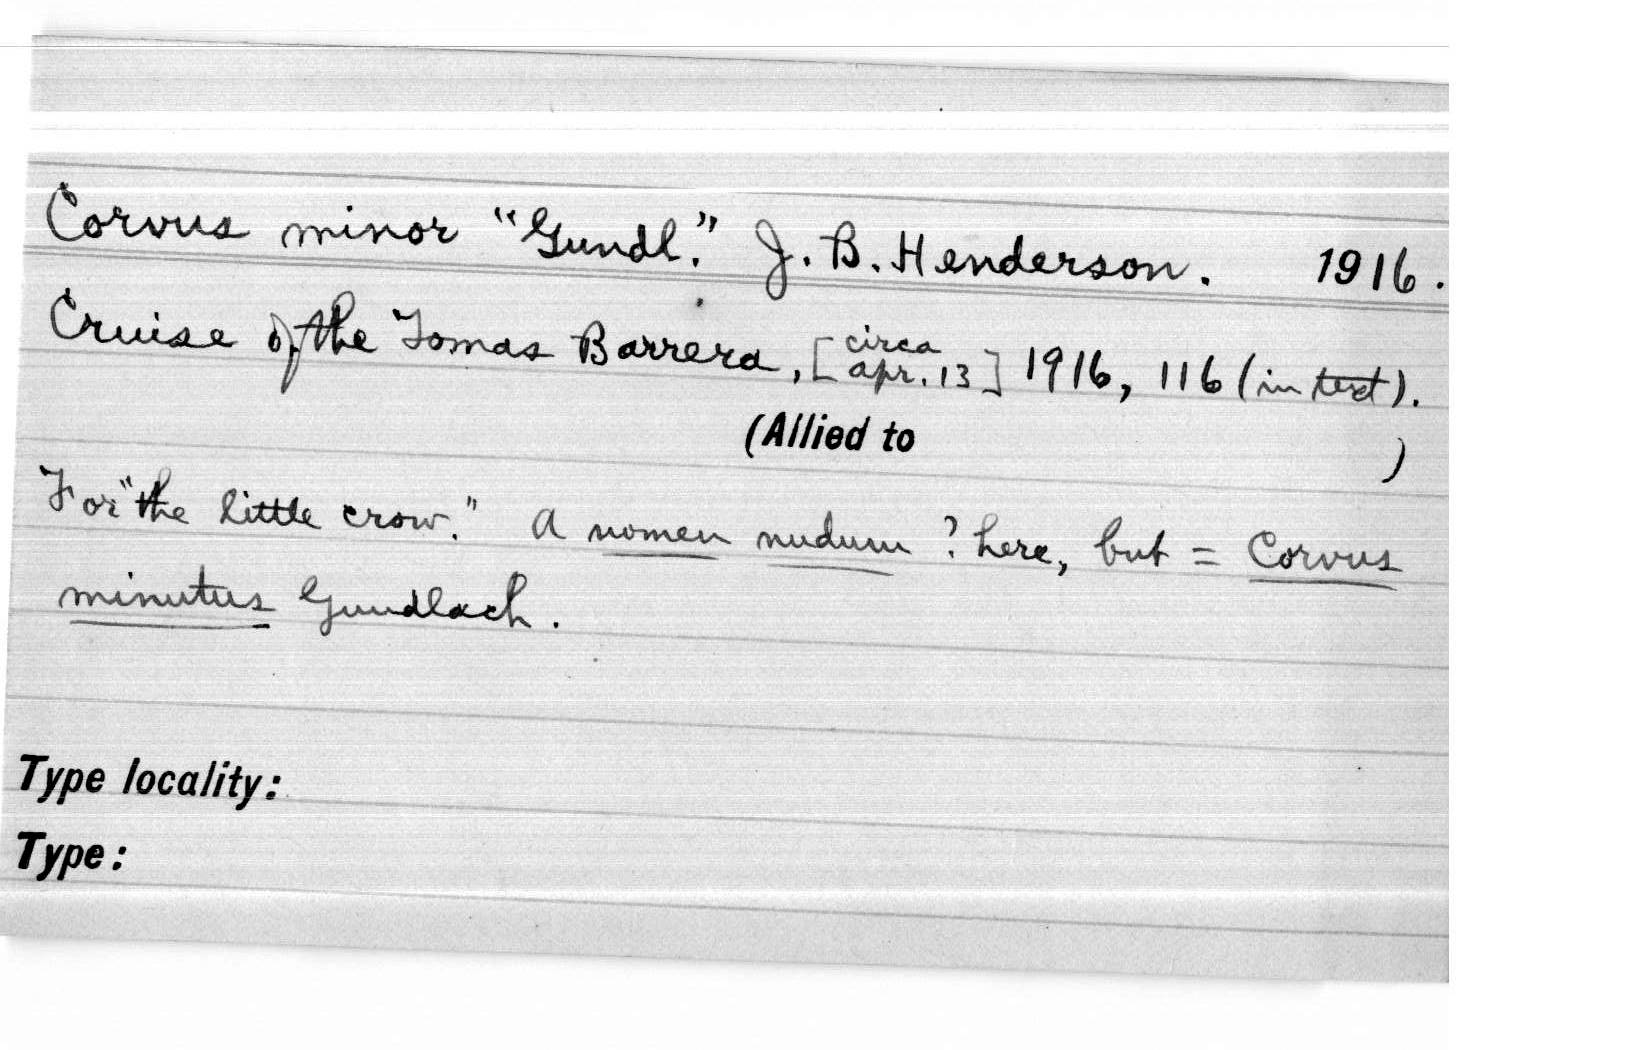 Corvus minor "Gundl." J. B. Henderson. 1916.
Cruise of the Tomas Barrera, [circa apr. 13] 1916, 116 (in text).
(Allied to )
For "the little crow." A nomen nudum? here, but = Corvus
minutus Gundlach.
Type locality:
Type: